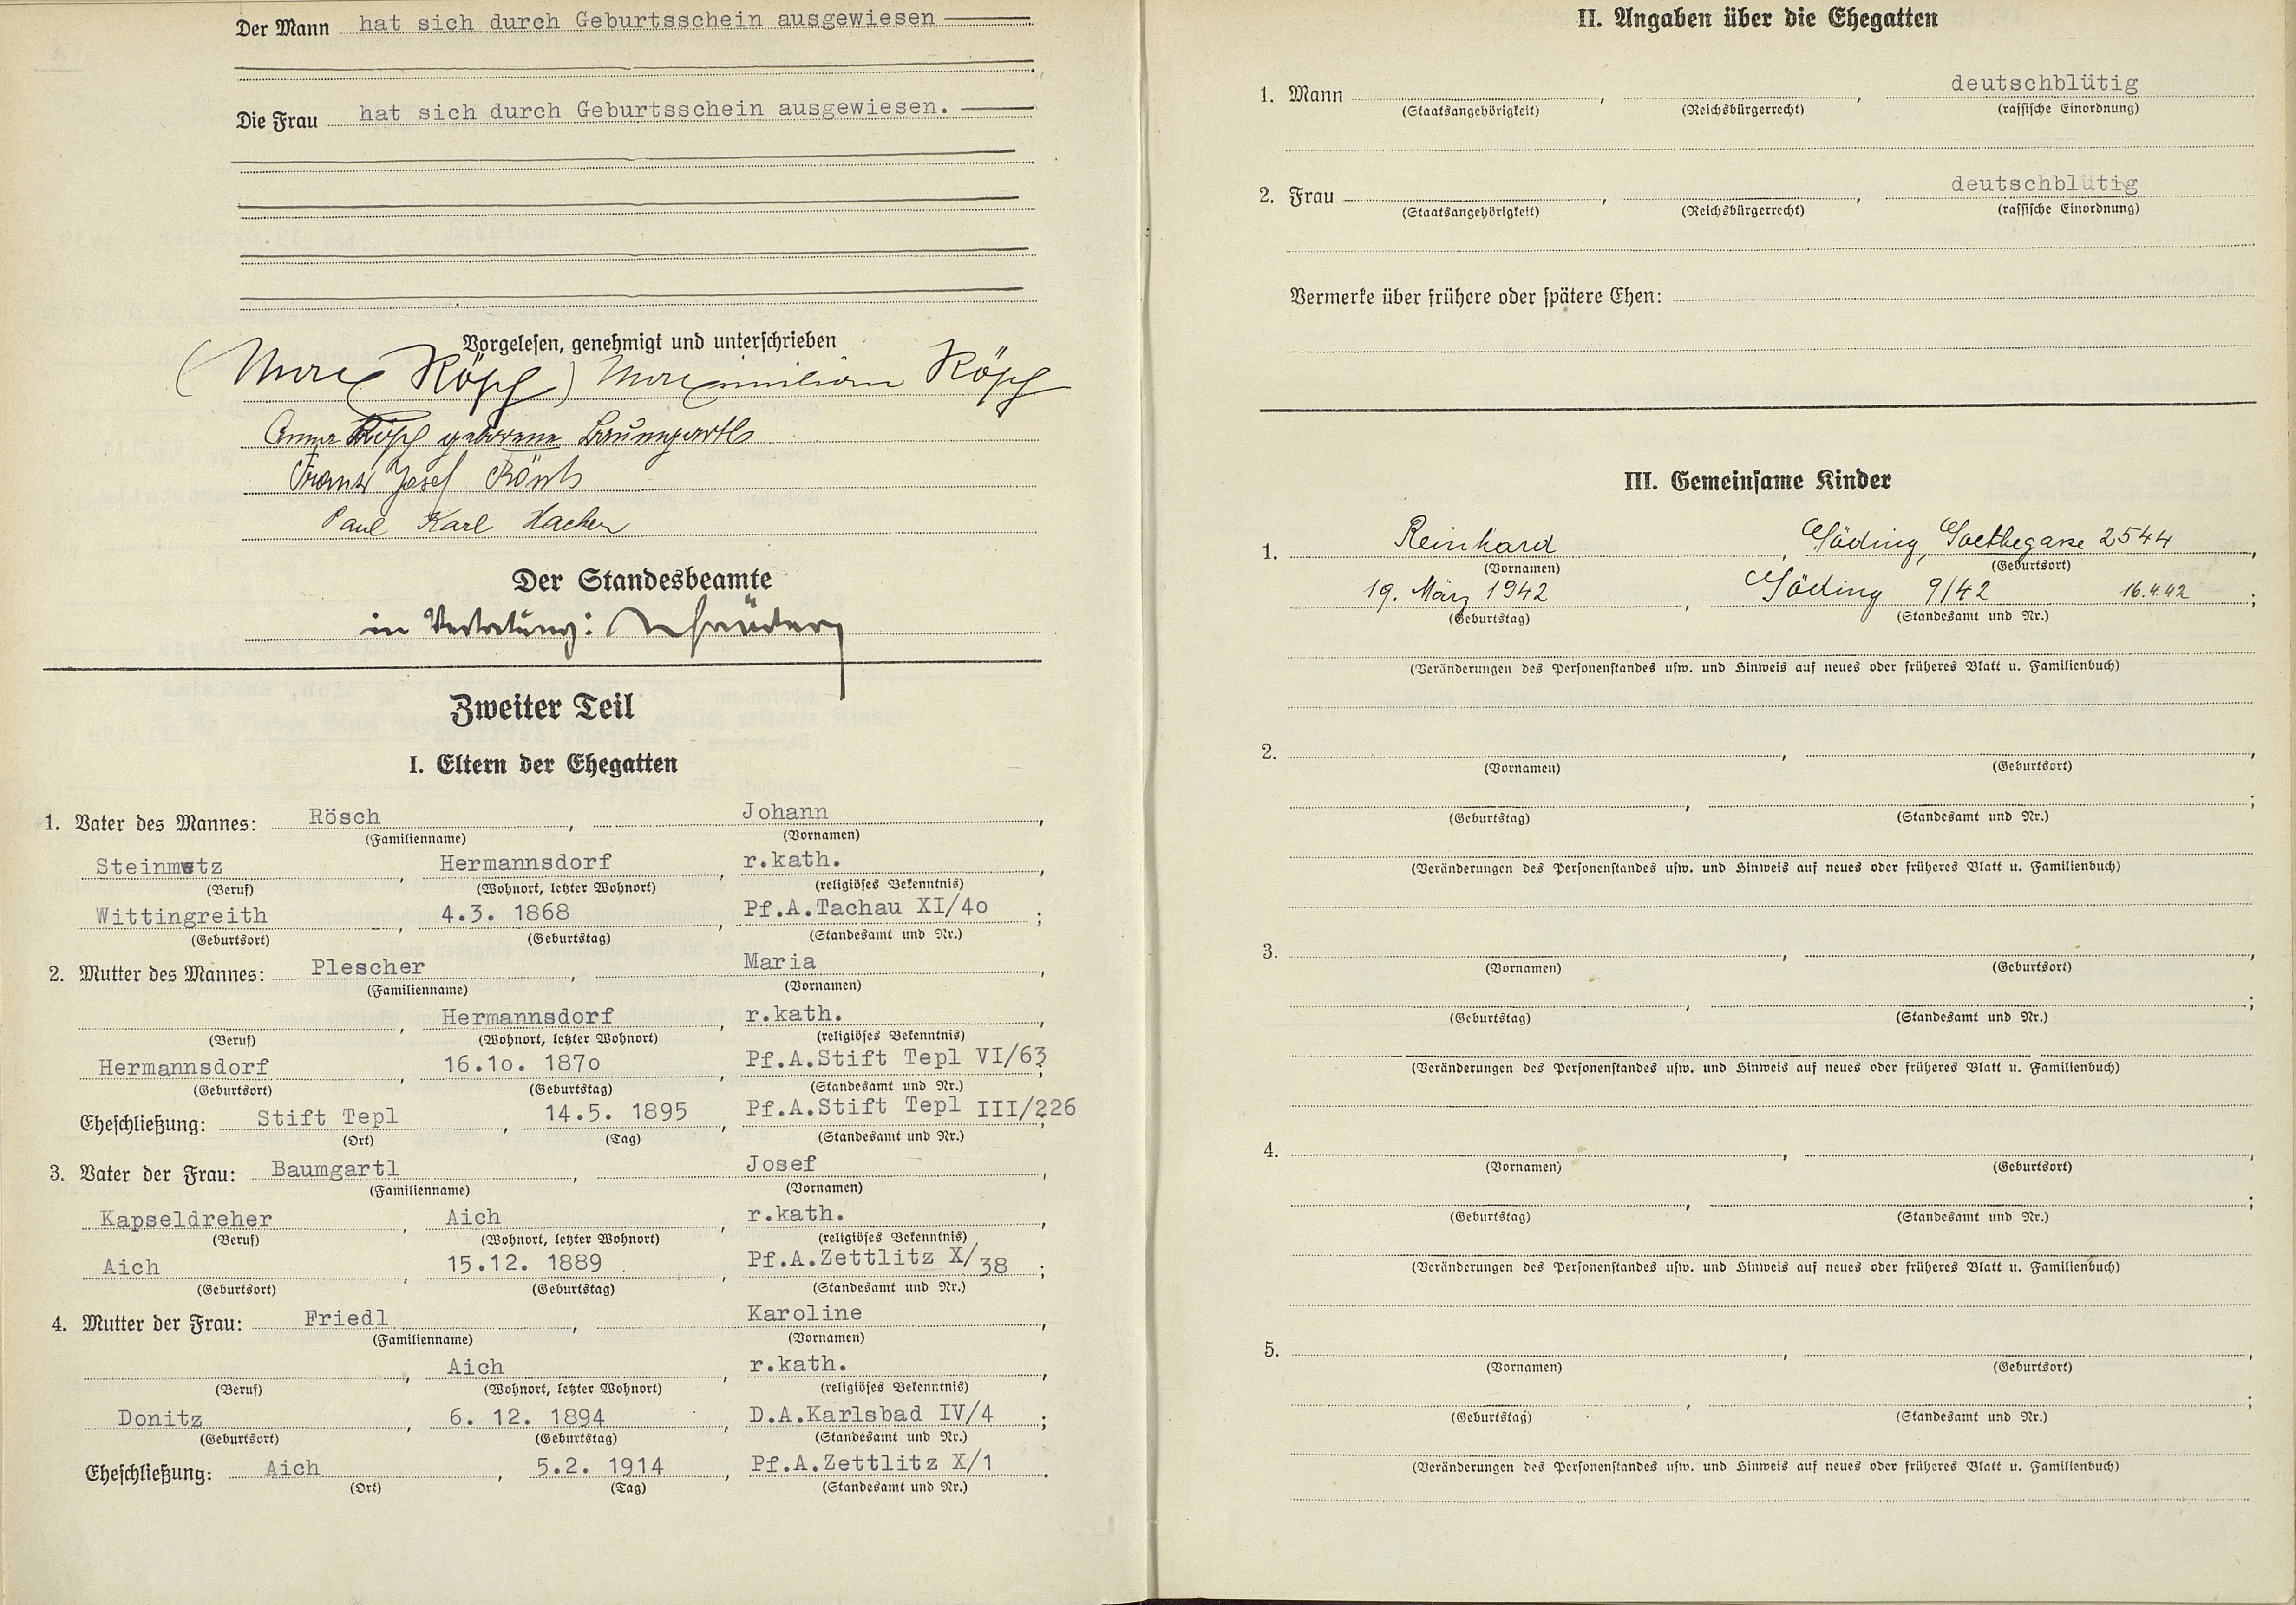 Der Mann hat sich durch Geburtsschein ausgewiesen
Die Frau hat sich durch Geburtsschein ausgewiesen.
Vorgelesen, genehmigt und unterschrieben
(Max Rösch) Maximilian Rösch
Anna Rösch geborene Baumgartl
Franz Josef
Paul Karl Hacker
Der Standesbeamte
in Vertretung:
Zweiter Teil
I. Eltern der Ehegatten
1. Vater des Mannes: Rösch, Johann,
(Familienname) (Vornamen)
Steinmetz, Hermannsdorf, r.kath.,
(Beruf) (Wohnort, letzter Wohnort) (religiöses Bekenntnis)
Wittingreith, 4.3. 1868, Pf.A.Tachau XI/4o;
(Geburtsort) (Geburtstag) (Standesamt und Nr.)
2. Mutter des Mannes: Plescher, Maria,
(Familienname) (Vornamen)
, Hermannsdorf, r.kath.,
(Beruf) (Wohnort, letzter Wohnort) (religiöses Bekenntnis)
Hermannsdorf, 16.1o. 187o, Pf.A.Stift Tepl VI/63;
(Geburtsort) (Geburtstag) (Standesamt und Nr.)
Eheschließung: Stift Tepl, 14.5. 1895, Pf.A.Stift Tepl III/226;
(Ort) (Tag) (Standesamt und Nr.)
3. Vater der Frau: Baumgartl, Josef,
(Familienname) (Vornamen)
Kapseldreher, Aich, r.kath.,
(Beruf) (Wohnort, letzter Wohnort) (religiöses Bekenntnis)
Aich, 15.12. 1889, Pf.A.Zettlitz X/38;
(Geburtsort) (Geburtstag) (Standesamt und Nr.)
4. Mutter der Frau: Friedl, Karoline,
(Familienname) (Vornamen)
, Aich, r.kath.,
(Beruf) (Wohnort, letzter Wohnort) (religiöses Bekenntnis)
Donitz, 6. 12. 1894, D.A.Karlsbad IV/4;
(Geburtsort) (Geburtstag) (Standesamt und Nr.)
Eheschließung: Aich, 5.2. 1914, Pf.A.Zettlitz X/1.
(Ort) (Tag) (Standesamt und Nr.)
II. Angaben über die Ehegatten
1. Mann , , deutschblütig
(Staatsangehörigkeit) (Reichsbürgerrecht) (rassische Einordnung)
2. Frau , , deutschblütig
(Staatsangehörigkeit) (Reichsbürgerrecht) (rassische Einordnung)
Vermerke über frühere oder spätere Ehen:
III. Gemeinsame Kinder
1. Reinhard, Göding, Goethegasse 2544,
(Vornamen) (Geburtsort)
19. März 1942, Göding 9/42 16.4.42;
(Geburtstag) (Standesamt und Nr.)
(Veränderungen des Personenstandes usw. und Hinweis auf neues oder früheres Blatt u. Familienbuch)
2. , ,
(Vornamen) (Geburtsort)
, ;
(Geburtstag) (Standesamt und Nr.)
(Veränderungen des Personenstandes usw. und Hinweis auf neues oder früheres Blatt u. Familienbuch)
3. , ,
(Vornamen) (Geburtsort)
, ;
(Geburtstag) (Standesamt und Nr.)
(Veränderungen des Personenstandes usw. und Hinweis auf neues oder früheres Blatt u. Familienbuch)
4. , ,
(Vornamen) (Geburtsort)
, ;
(Geburtstag) (Standesamt und Nr.)
(Veränderungen des Personenstandes usw. und Hinweis auf neues oder früheres Blatt u. Familienbuch)
5. , ,
(Vornamen) (Geburtsort)
, ;
(Geburtstag) (Standesamt und Nr.)
(Veränderungen des Personenstandes usw. und Hinweis auf neues oder früheres Blatt u. Familienbuch)